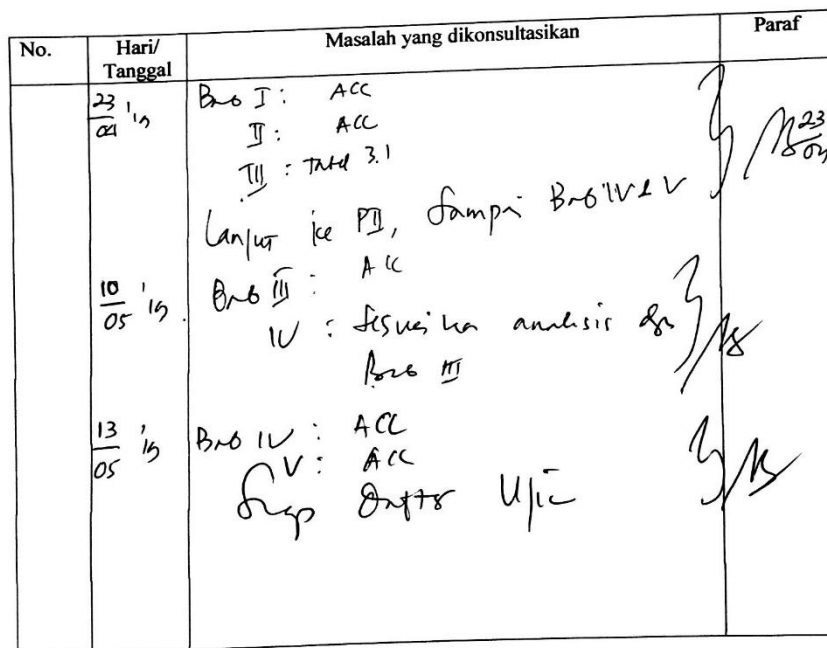 No. Hari/ Tanggal Masalah yang dikonsultasikan Paraf
23/04 '19 Bab I : ACC
II : ACC
III : Tabel 3.1
23/04
Lanjut ke PII, Sampai Bab IV & V
10/05 '19 Bab III : ACC
IV : Sesuaikan analisis dgn
Bab III
13/05 '19 Bab IV : ACC
V : ACC
Siap Daftar Ujian